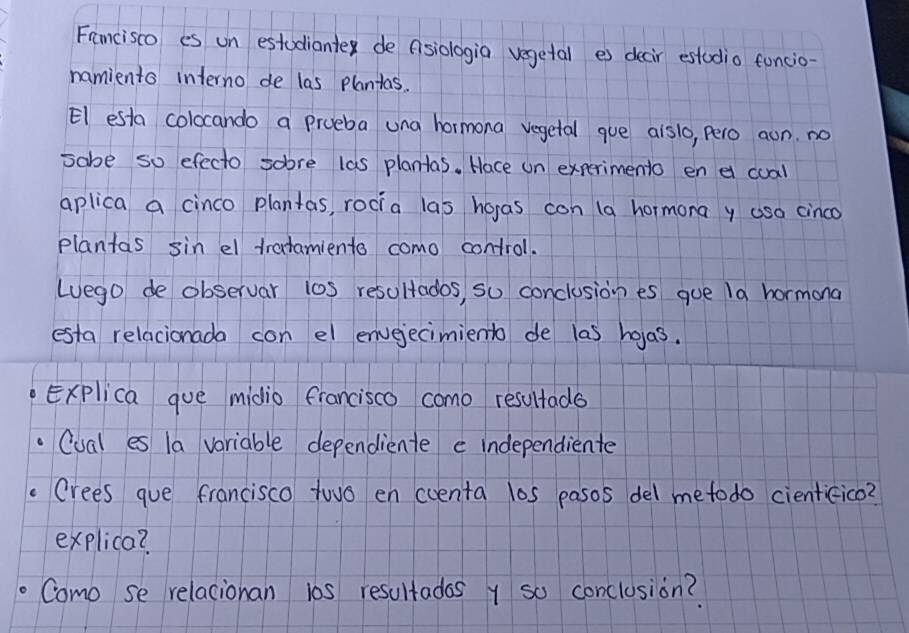 Francisco es un estudiante de fisiologia vegetal es decir estudio funcio-
namiento interno de las plantas.
El esta colocando a prueba una hormona vegetal que aislo, pero aun. no
sabe su efecto sobre las plantas. Hace un experimento en el cual
aplica a cinco plantas, rocía las hojas con la hormona y usa cinco
plantas sin el tratamiento como control.
Luego de observar los resultados, su conclusión es que la hormona
esta relacionada con el envejecimiento de las hojas.
• Explica que midio francisco como resultado
• Cual es la variable dependiente e independiente
• Crees que francisco tuvo en cuenta los pasos del metodo cientifico?
explica?
• Como se relacionan los resultados y su conclusión?